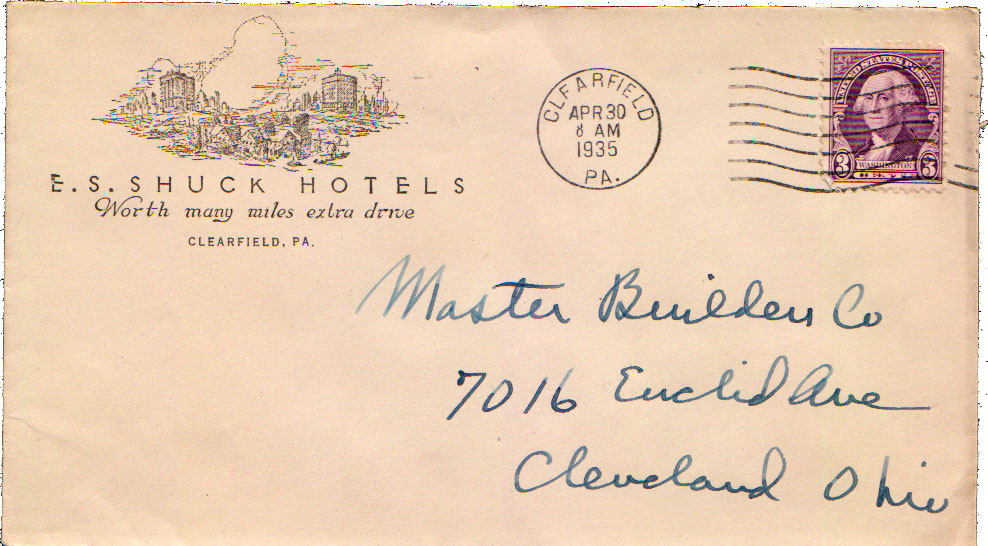 E. S. SHUCK HOTELS
Worth many miles extra drive
CLEARFIELD, PA.
CLEARFIELD
APR 30
8 AM
1935
PA.
UNITED STATES POSTAGE
3 WASHINGTON 3
CENTS
Master Builders Co
7016 Euclid Ave
Cleveland Ohio